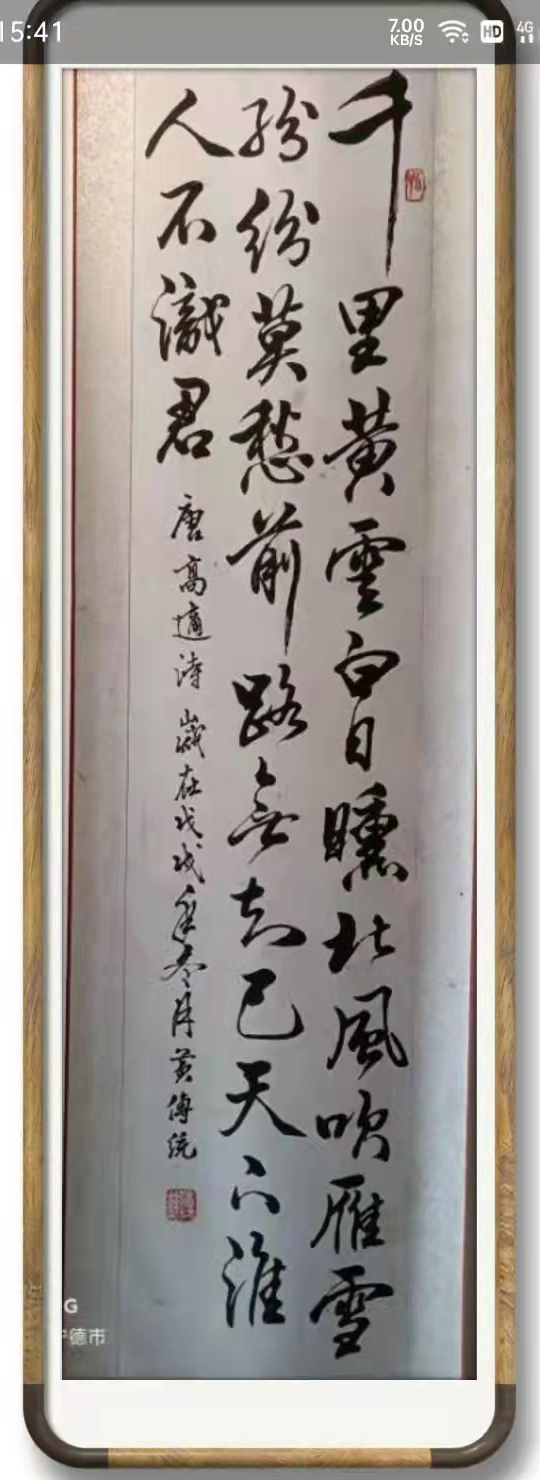 15:41 7.00 KB/S HD 4G
千里黄雲白日曛北風吹雁雪
紛紛莫愁前路無知己天下誰
人不識君
唐高適詩歲在戊戌年冬月黄傳統
G
德市